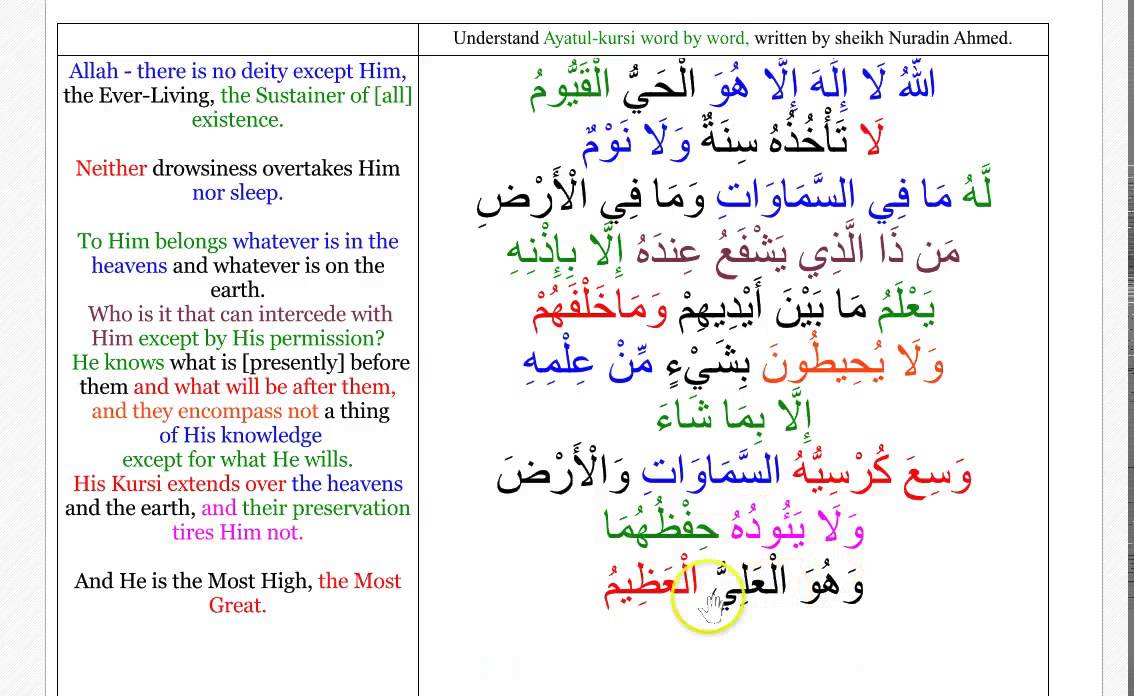 Understand Ayatul-kursi word by word, written by sheikh Nuradin Ahmed.
Allah - there is no deity except Him,
the Ever-Living, the Sustainer of [all]
existence.
Neither drowsiness overtakes Him
nor sleep.
To Him belongs whatever is in the
heavens and whatever is on the
earth.
Who is it that can intercede with
Him except by His permission?
He knows what is [presently] before
them and what will be after them,
and they encompass not a thing
of His knowledge
except for what He wills.
His Kursi extends over the heavens
and the earth, and their preservation
tires Him not.
And He is the Most High, the Most
Great.
اللَّهُ لَا إِلَٰهَ إِلَّا هُوَ الْحَيُّ الْقَيُّومُ
لَا تَأْخُذُهُ سِنَةٌ وَلَا نَوْمٌ
لَّهُ مَا فِي السَّمَاوَاتِ وَمَا فِي الْأَرْضِ
مَن ذَا الَّذِي يَشْفَعُ عِندَهُ إِلَّا بِإِذْنِهِ
يَعْلَمُ مَا بَيْنَ أَيْدِيهِمْ وَمَاخَلْفَهُمْ
وَلَا يُحِيطُونَ بِشَيْءٍ مِّنْ عِلْمِهِ
إِلَّا بِمَا شَاءَ
وَسِعَ كُرْسِيُّهُ السَّمَاوَاتِ وَالْأَرْضَ
وَلَا يَئُودُهُ حِفْظُهُمَا
وَهُوَ الْعَلِيُّ الْعَظِيمُ